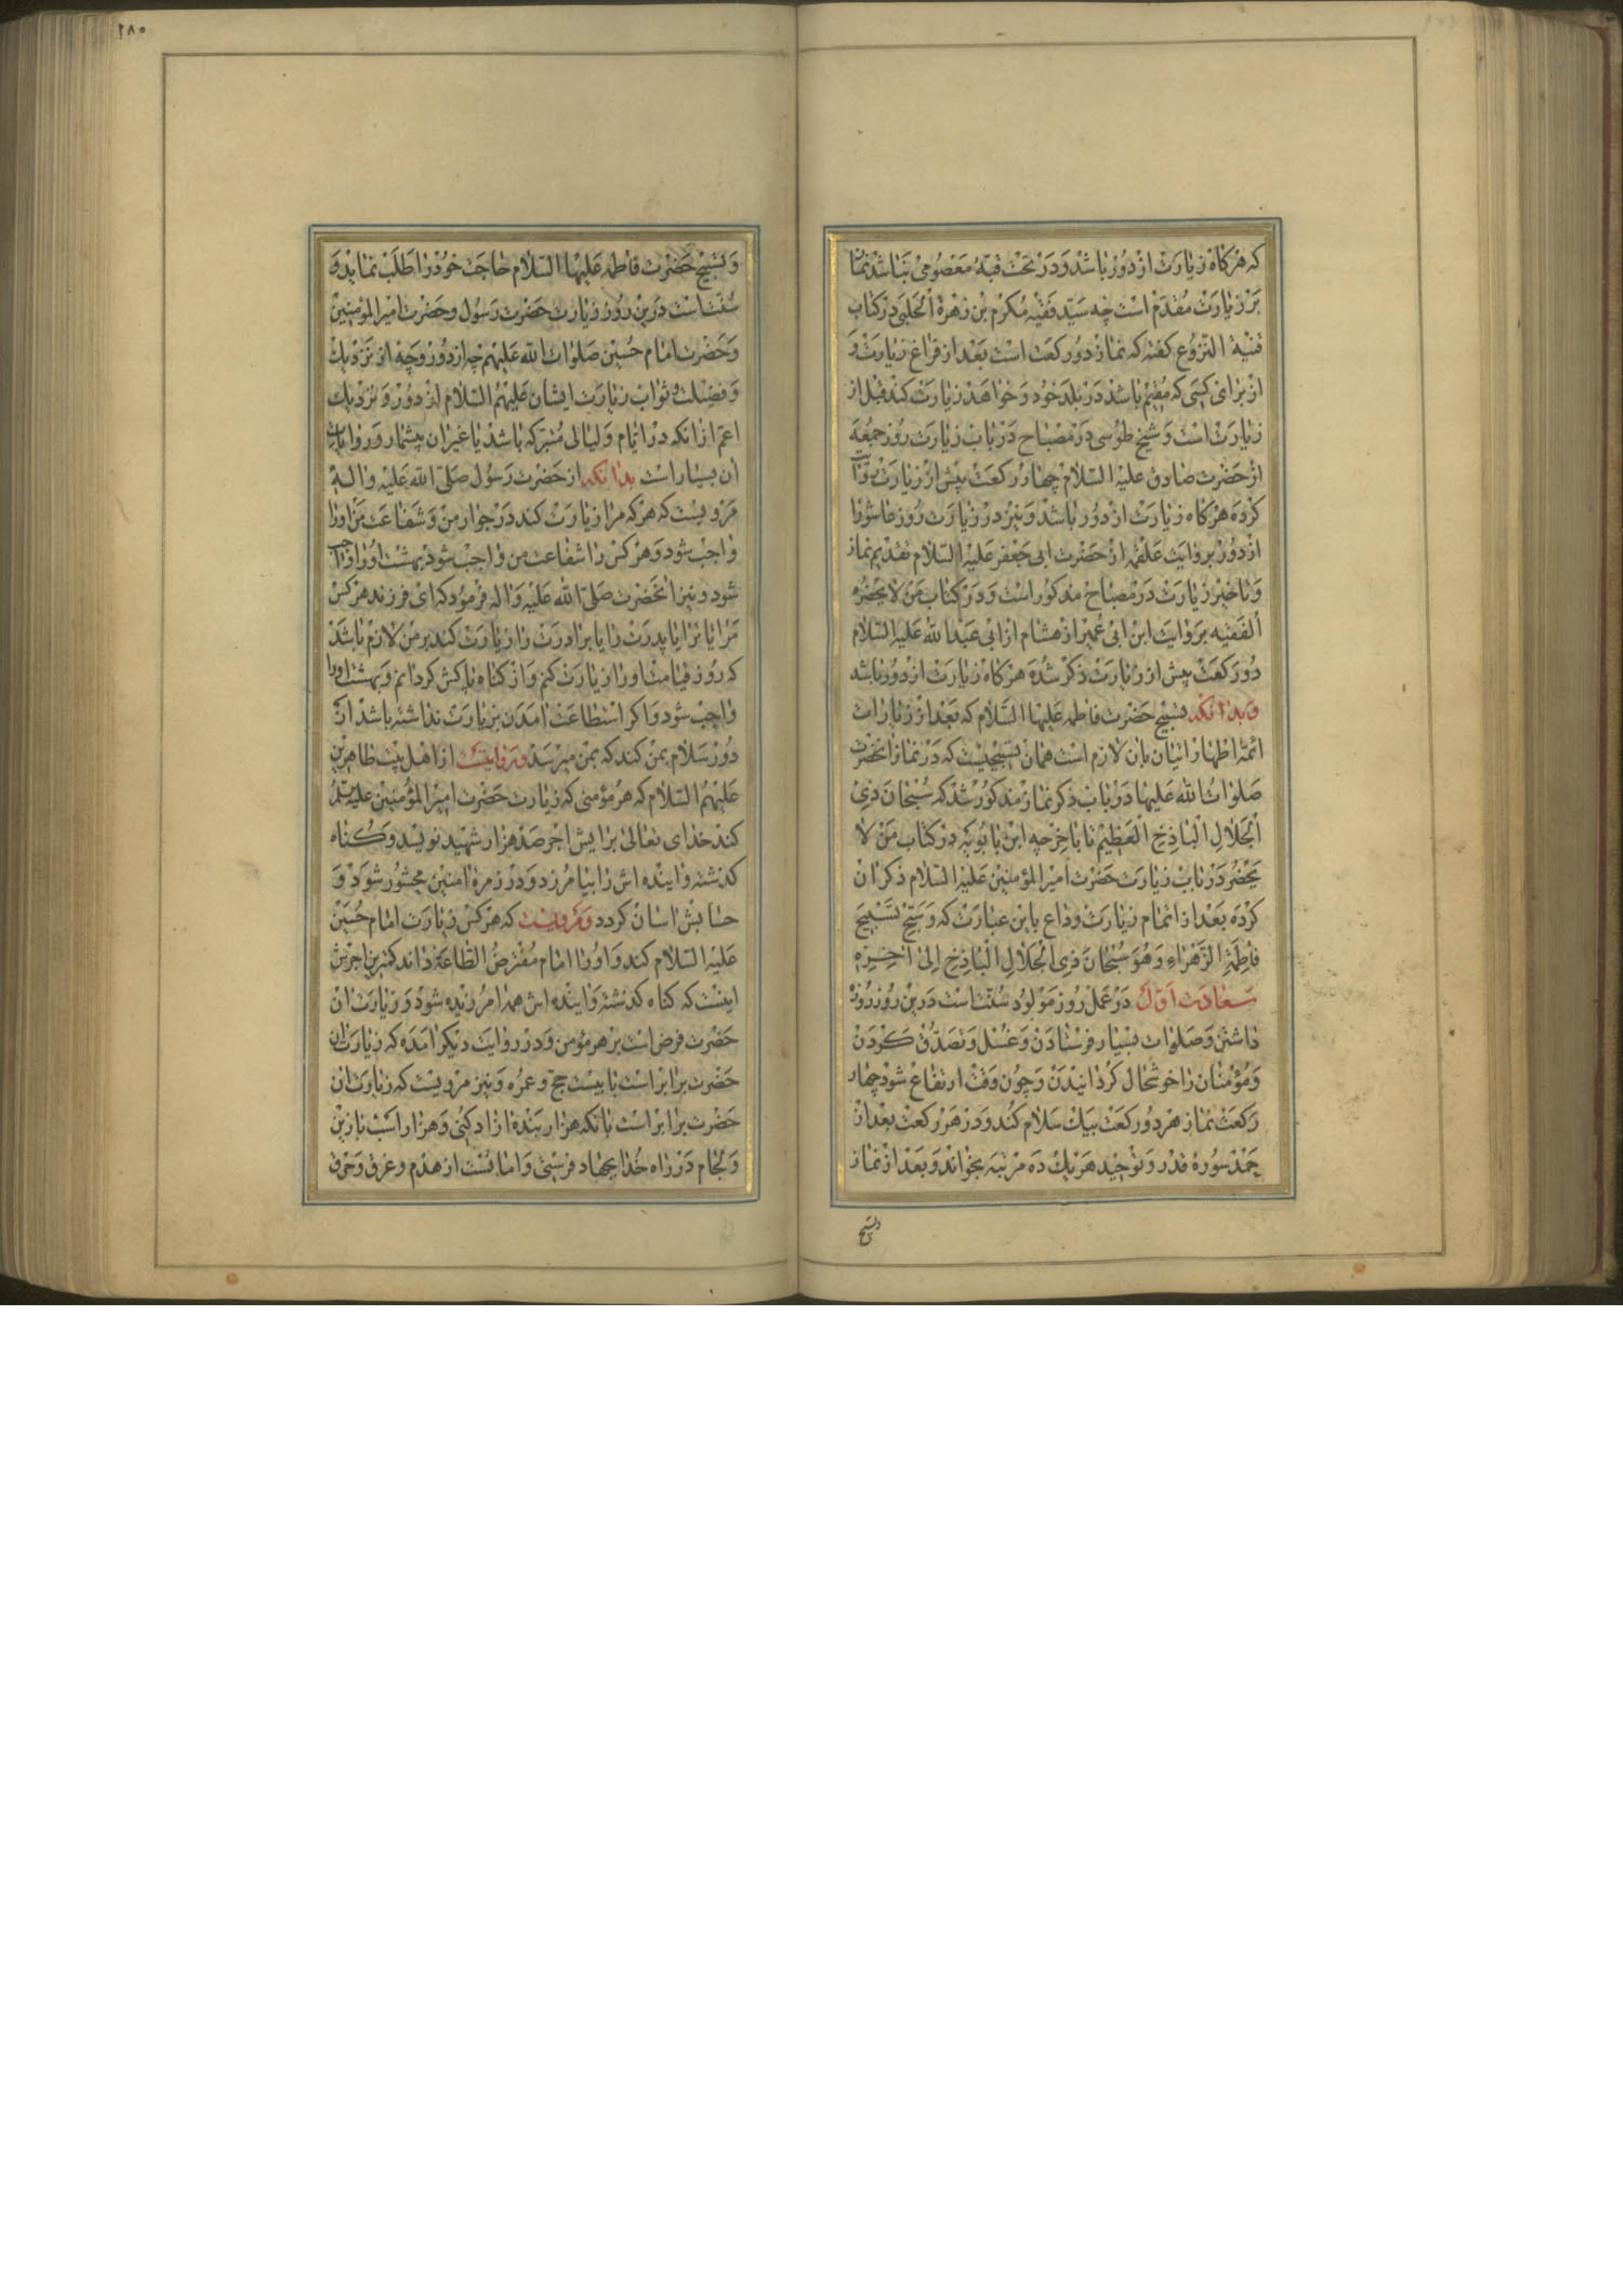 که هرکاه زیارت از دور باشد و در تحت قبّهٔ معصومی نباشد نماز
بر زیارت مقدّم است چه سیّد فقیه مکرم بن زهرة الحلبی در کتاب
غنیة النزوع کفته که نماز دو رکعت است بعد از فراغ زیارت و
از برای کسی که مقیم باشد در بلد خود و خواهد زیارت کند قبل از
زیارت است و شیخ طوسی در مصباح در باب زیارت روز جمعه
از حضرت صادق علیه السّلام چهار رکعت پیش از زیارت روایت
کرده هرکاه زیارت از دور باشد و نیز در زیارت روز عاشورا
از دور بروایت علقمه از حضرت ابی جعفر علیه السّلام تقدیم نماز
و تاخیر زیارت در مصباح مذکور است و در کتاب من لا یحضره
الفقیه بروایت ابن ابی عمیر از هشام از ابی عبد الله علیه السّلام
دو رکعت پیش از زیارت ذکر شده هرکاه زیارت از دور باشد
و بدانکه تسبیح حضرت فاطمه علیها السّلام که بعد از زیارات
ائمّه اطهار اتیان بان لازم است همان تسبیحیست که در نماز انحضرت
صلوات الله علیها در باب ذکر نماز مذکور شد که سُبْحانَ ذِی
الْجَلالِ الْباذِخِ الْعَظیمِ تا باخر چه ابن بابویه در کتاب من لا
یحضر در باب زیارت حضرت امیر المؤمنین علیه السّلام ذکر ان
کرده بعد از اتمام زیارت وداع باین عبارت که وَسَبِّحْ تَسْبیحَ
فاطِمَةَ الزَّهْراءِ وَهُوَ سُبْحانَ ذِی الْجَلالِ الْباذِخِ اِلی اخِرِهِ
سعادت اوّل در عمل روز مولود سنّت است درین روز روزه
داشتن و صلوات بسیار فرستادن و غسل و تصدّق کردن
و مؤمنان را خوشحال کردانیدن و چون وقت ارتفاع شود چهار
رکعت نماز هر دو رکعت بیک سلام کند و در هر رکعت بعد از
حمد سورهٔ قدر و توحید هریک ده مرتبه بخواند و بعد از نماز
وتسبیح
١٨٥
و تسبیح حضرت فاطمه علیها السّلام حاجت خود را طلب نماید و
سنّت است درین روز زیارت حضرت رسول و حضرت امیر المؤمنین
و حضرت امام حسین صلوات الله علیهم چه از دور و چه از نزدیک
و فضیلت و ثواب زیارت ایشان علیهم السّلام از دور و نزدیک
اعم از انکه در ایّام و لیالی متبرّکه باشد یا غیر ان بیشمار و روایات
ان بسیار است بدانکه از حضرت رسول صلّی الله علیه واله
مرویست که هرکه مرا زیارت کند در جوار من و شفاعت من او را
واجب شود و هرکس را شفاعت من واجب شود بهشت او را واجب
شود و نیز انحضرت صلّی الله علیه واله فرمود که ای فرزند هرکس
مرا یا ترا یا پدرت را یا برادرت را زیارت کند بر من لازم باشد
که روز قیامت او را زیارت کنم و از کناه پاکش کردانم و بهشت او را
واجب شود و اکر استطاعت امدن بزیارت نداشته باشد از
دور سلام بمن کند که بمن میرسد و مرویست از اهل بیت طاهرین
علیهم السّلام که هر مؤمنی که زیارت حضرت امیر المؤمنین علیه السلم
کند خدای تعالی برایش اجر صد هزار شهید نویسد و کناه
کذشته و اینده اش را بیامرزد و در زمرهٔ امنین محشور شود و
حسابش اسان کردد و مرویست که هرکس زیارت امام حسین
علیه السّلام کند و او را امام مفترض الطّاعة داند کمترین اجرش
اینست که کناه کذشته و اینده اش همه امرزیده شود و زیارت ان
حضرت فرض است بر هر مؤمن و در روایت دیکر امده که زیارت ان
حضرت برابر است با بیست حج و عمره و نیز مرویست که زیارت ان
حضرت برابر است بانکه هزار بنده ازاد کنی و هزار اسب با زین
و لجام در راه خدا بجهاد فرستی و امانست از هدم و غرق و حرق